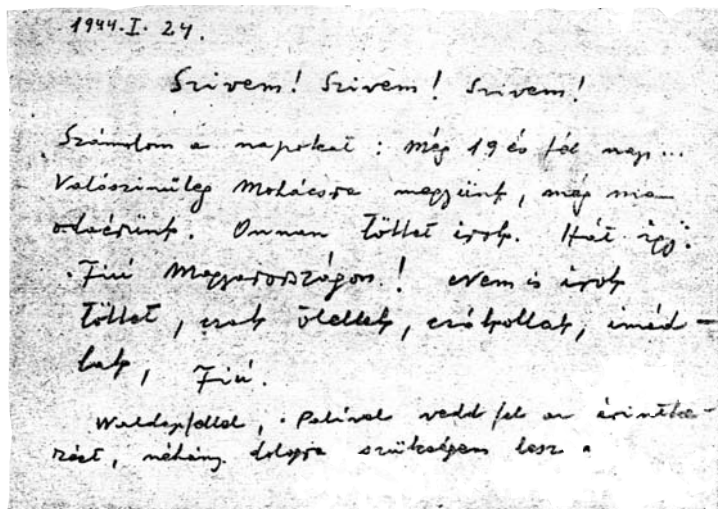 1944. I. 24.
Szivem! Szivem! Szivem!
Számolom a napokat: Még 19 és fél nap...
Valószinűleg Mohácsra megyünk, még ma
odaérünk. Onnan többet irok. Hát igy:
Fiú Magyarországon! Nem is irok
többet, csak ölellek, csókollak, imád-
lak, Fiú.
Waldapfellel, Palival vedd fel az érintke-
zést, néhány dologra szükségem lesz.